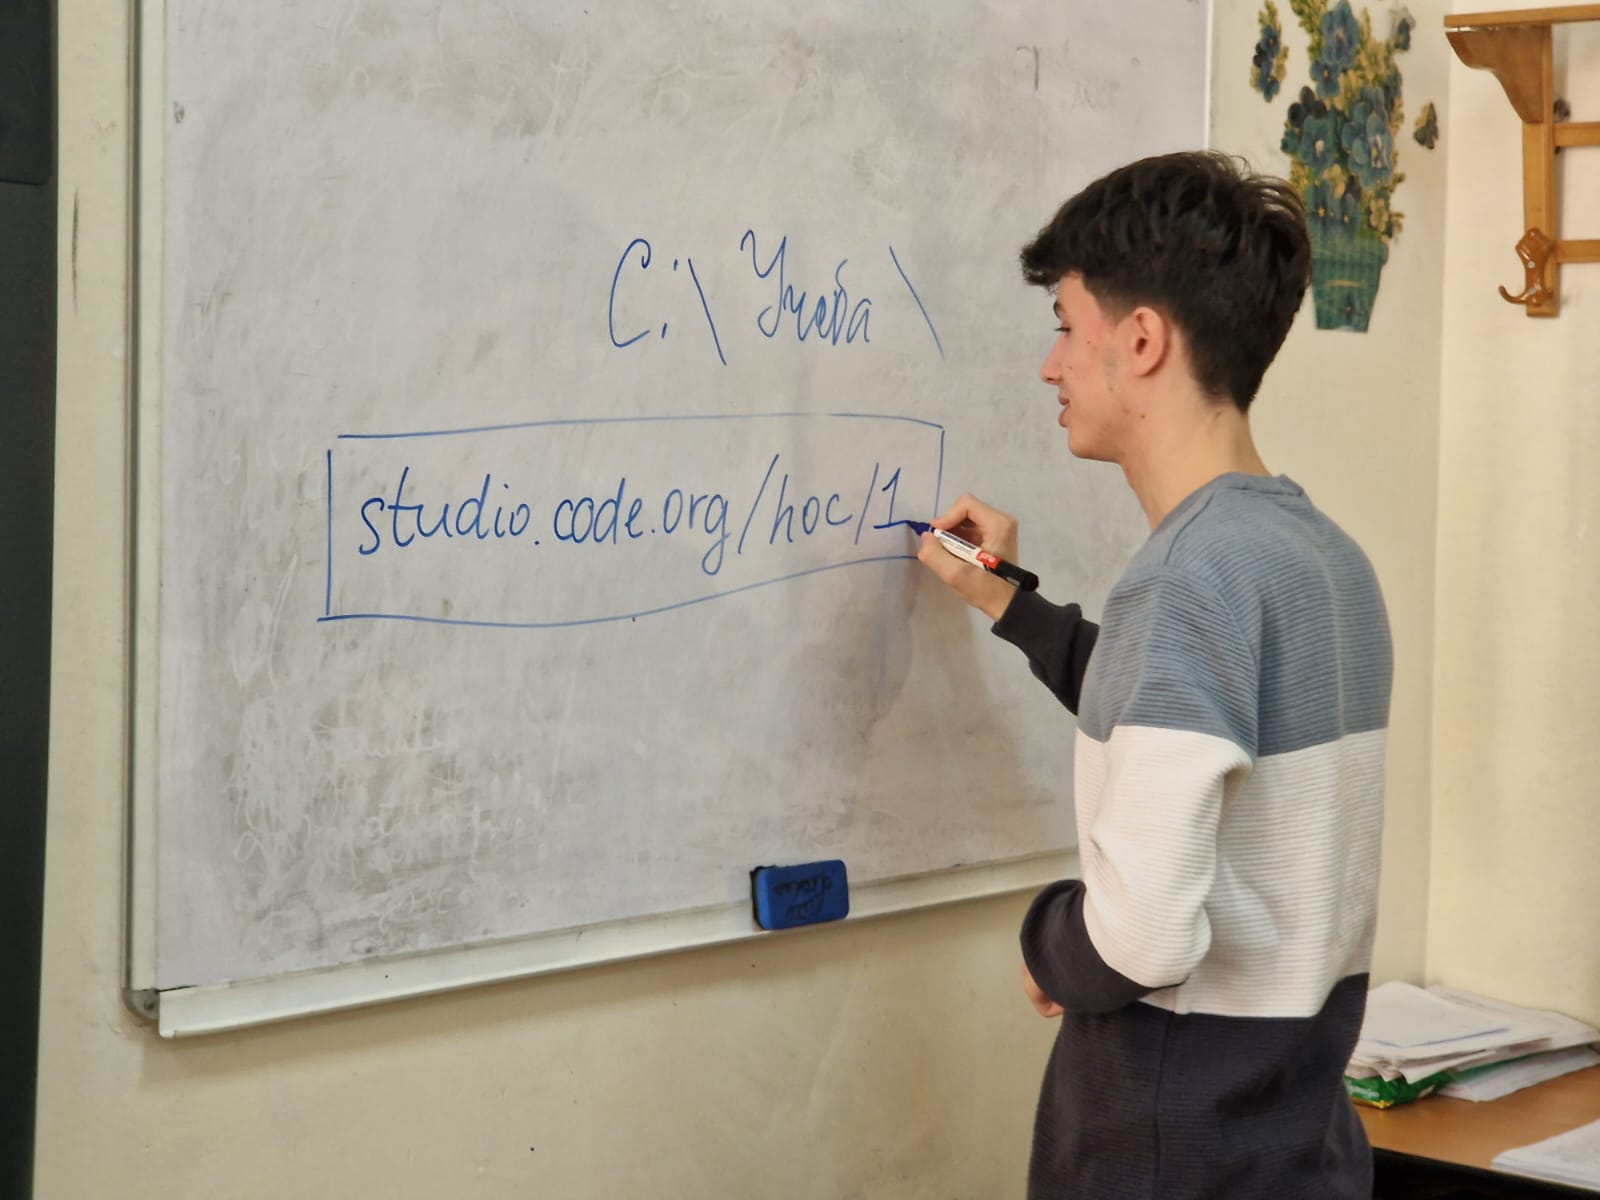 C:\ Учеба \
studio.code.org/hoc/1